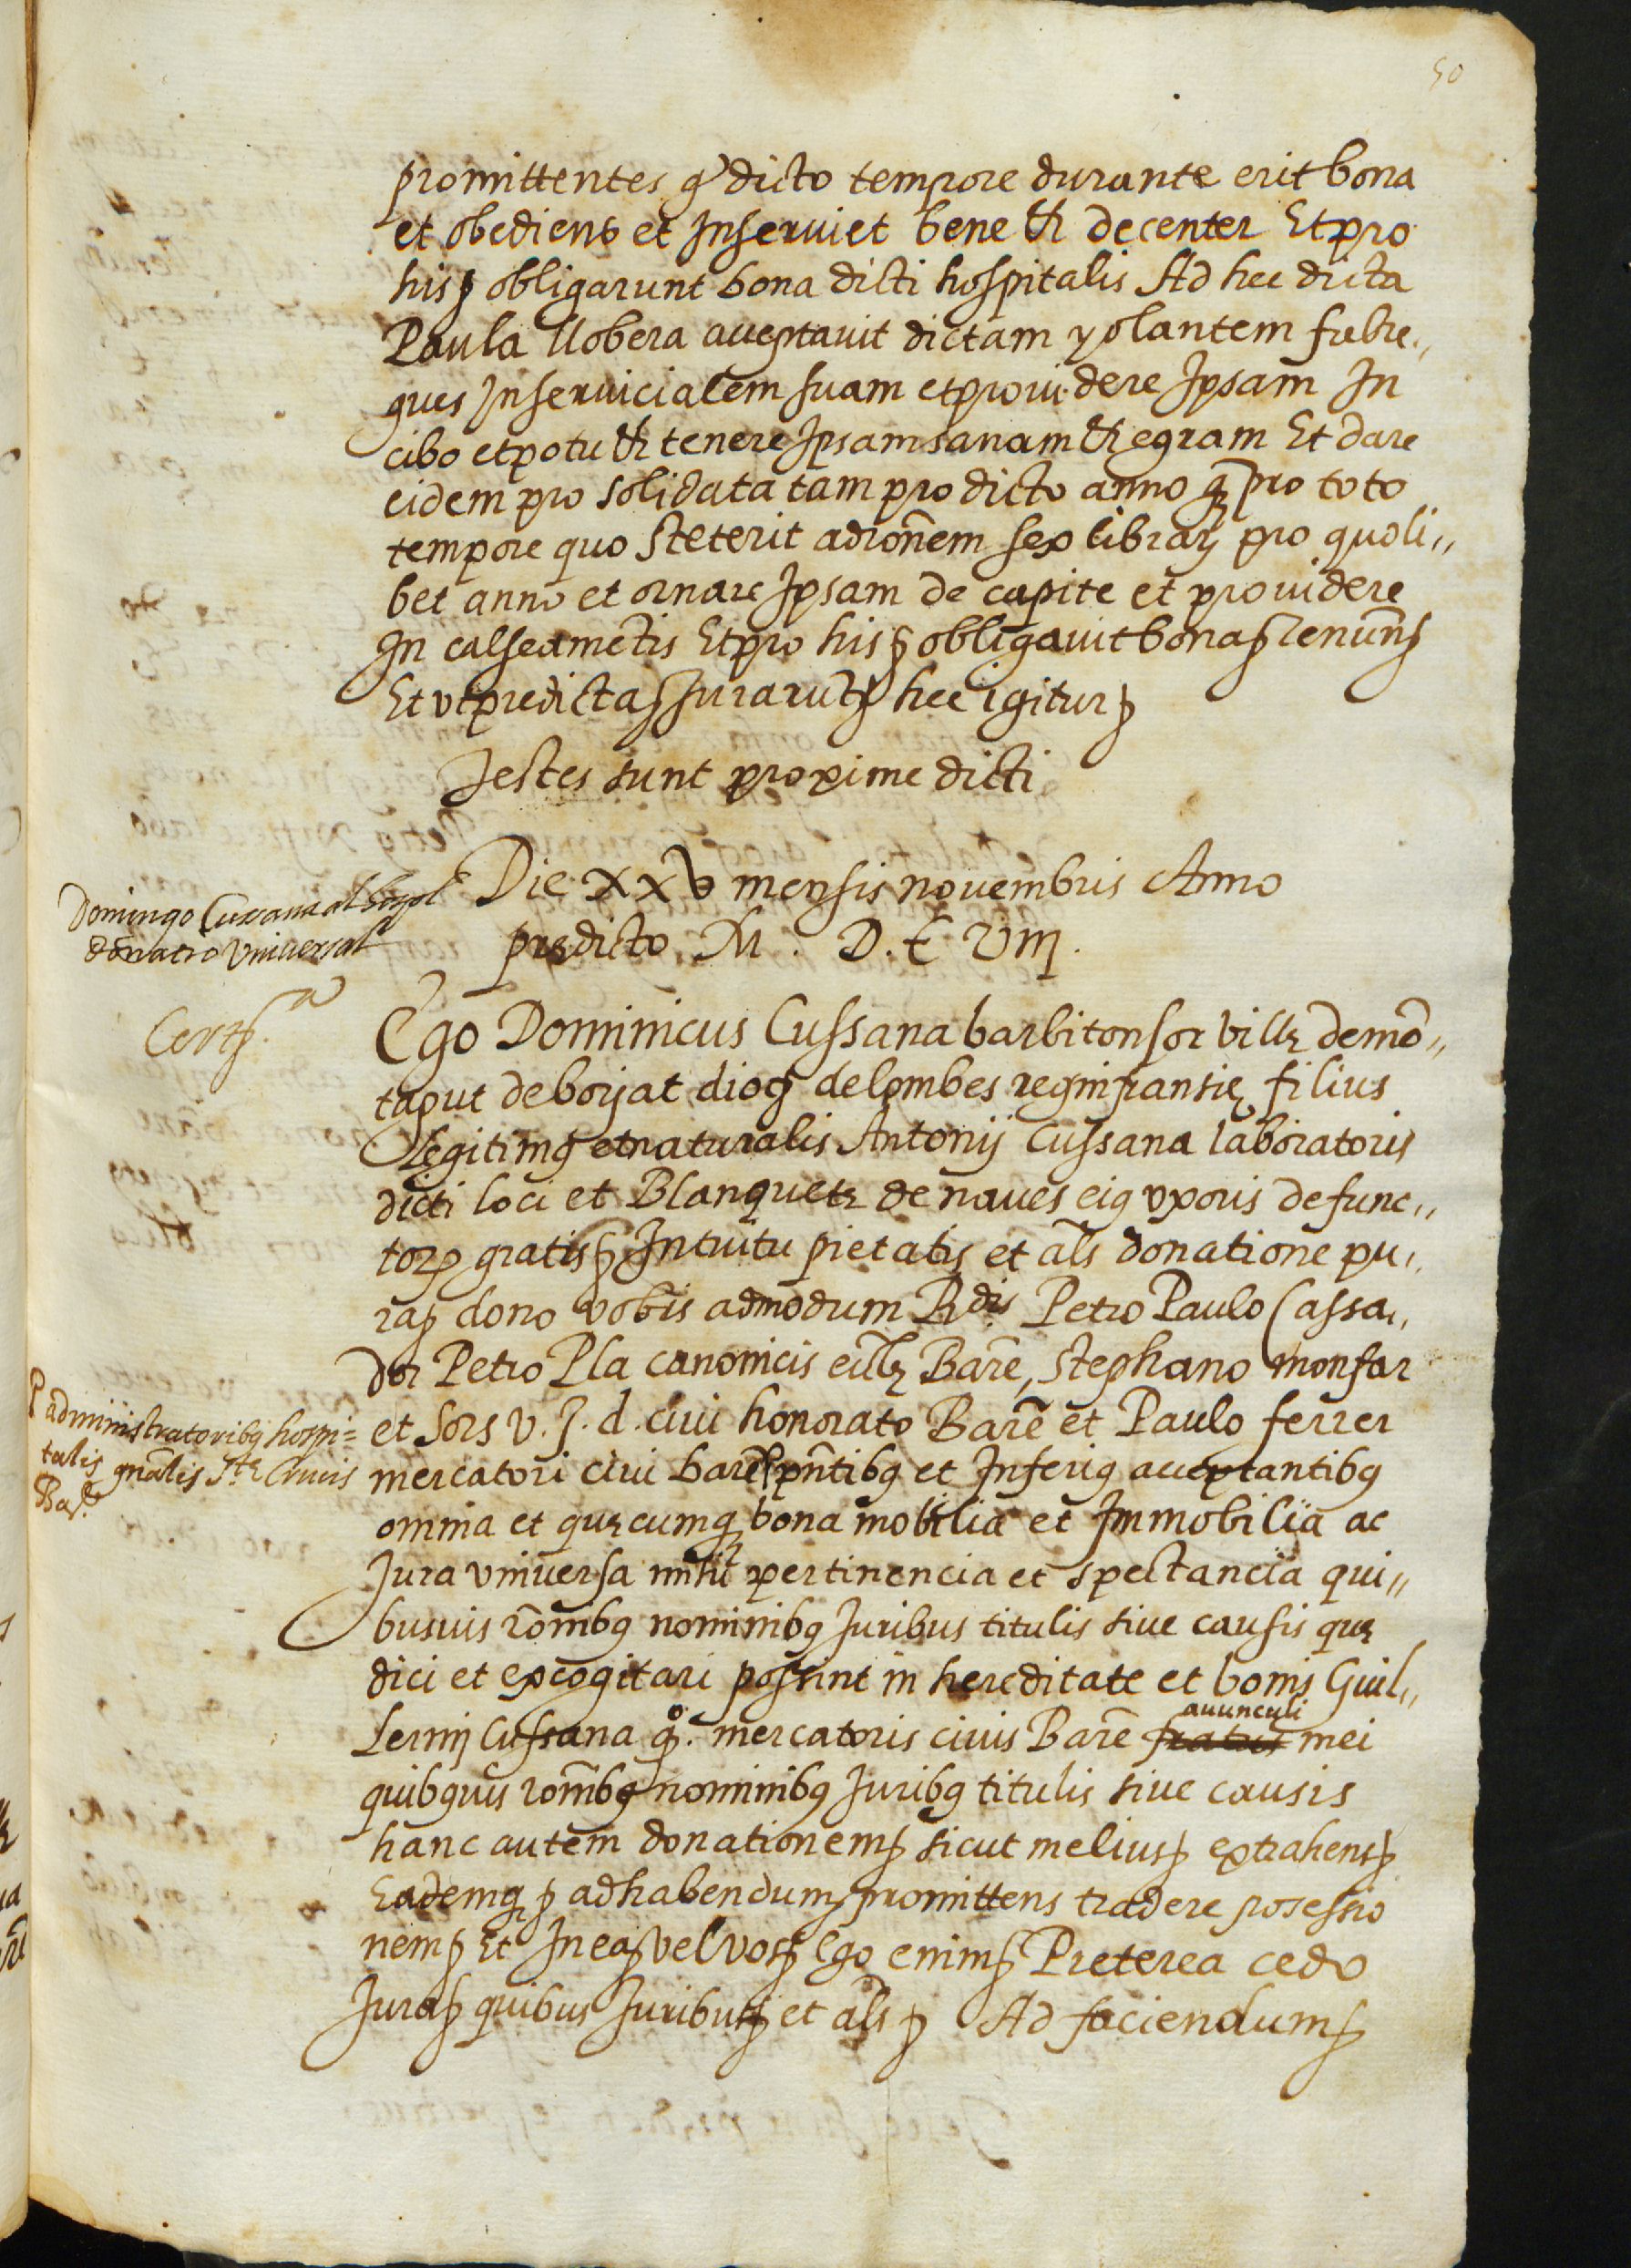 50
promittentes q dicto tempore durante erit bona
et obediens et Inseruiet bene & decenter Et pro
his obligarunt bona dicti hospitalis Ad hec dicta
Paula llobera acceptauit dictam yolantem fabre„
gues Inseruicialem suam et prouidere Ipsam In
cibo et potu & tenere Ipsam sanam & egram Et dare
eidem pro solidata tam pro dicto anno q pro toto
tempore quo Steterit ad rōnem sex librarum pro quoli„
bet anno et ornare Ipsam de capite et prouidere
In calseamētis Et pro his obligauit bona renunñ
Et vt predicta Jurarūt hec igitur
Testes sunt proxime dicti
Domingo Cussana al hospl
donatio vniuersal
Die xxv mensis nouembris Anno
predicto M. D. L viiij.
Certf.a
Ego Dominicus Cussana barbitonsor ville de mō„
taput de borjat dioc̄ de lombes regni fransie filius
Legitimq et naturalis Antonij Cussana laboratoris
dicti loci et Blanquete de naues eiq vxoris defunc„
torum gratis Intuitu pietatis et als donatione pu„
ra dono vobis admodum Rdis Petro Paulo Cassa„
dor Petro Pla canonicis eccle Barē, Stephano monfar
et Sors V. J. d. ciui honorato Barē et Paulo ferrer
P administratoribq hospi=
talis gnālis Ste Crucis
Bar.e
mercatori ciui barē P pntibq et Inferiq acceptantibq
omnia et quecumq bona mobilia et Immobilia ac
Jura vniuersa mihi pertinencia et spectancia qui„
busuis rōnibq nominibq Juribus titulis siue causis que
dici et excogitari possint in hereditate et bonis Guil„
Lermj Cussana q.o mercatoris ciuis Barē fratris auunculi mei
quibquis rōnibq nominibq Juribq titulis siue causis
hanc autem donationem sicut melius extrahens
Eademq ad habendum promittens tradere posessio
nem Et In ea vel vos Ego enim Preterea cedo
Jura quibus Juribus et als Ad faciendum